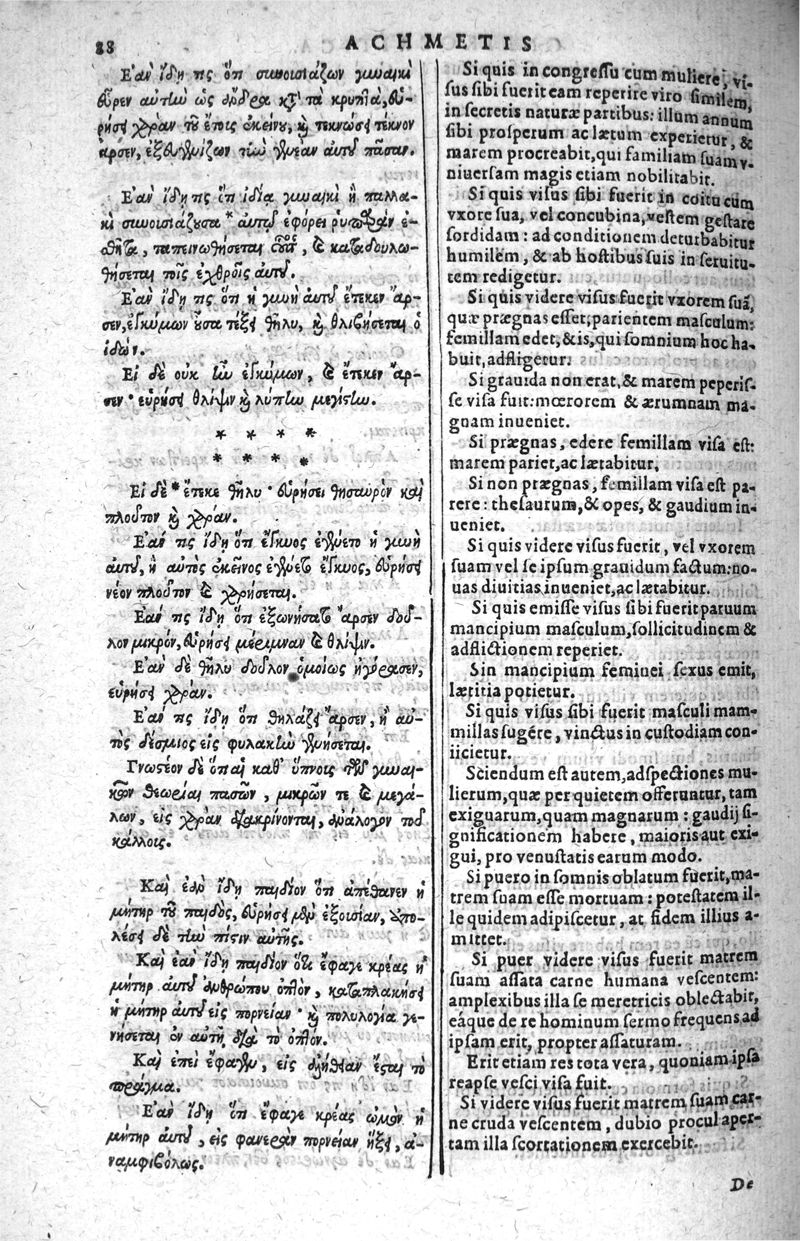 88
ACHMETIS
Ἐὰν ἴδῃ τις ὅτι συνουσιάζων γυναικὶ
εὗρεν αὐτὴν ὡς ἄνδρα κατὰ τὰ κρυπτὰ, εὑ-
ρήσει χαρὰν τοῦ ἔτους ἐκείνου, καὶ τεκνώσει τέκνον
ἄρσεν, ἐξευγενίζων τὴν γενεὰν αὐτοῦ πᾶσαν.
Ἐὰν ἴδῃ τις ὅτι ἰδίᾳ γυναικὶ ἢ παλλα-
κῇ συνουσιάζουσα * αὐτῷ ἐφόρει ῥυπαρὰν ἐ-
σθῆτα, ταπεινωθήσεται οὗτος, καὶ καταδουλω-
θήσεται τοῖς ἐχθροῖς αὐτοῦ.
Ἐὰν ἴδῃ τις ὅτι ἡ γυνὴ αὐτοῦ ἔτεκεν ἄρ-
σεν, ἐγκύμων οὖσα τέξει θῆλυ, καὶ θλιβήσεται ὁ
ἰδών.
Εἰ δὲ οὐκ ἦν ἐγκύμων, καὶ ἔτεκεν ἄρ-
σεν· εὑρήσει θλῖψιν καὶ λύπην μεγίστην.
* * * *
* * * *
Εἰ δὲ * ἔτεκε θῆλυ· εὑρήσει θησαυρὸν καὶ
πλοῦτον καὶ χαράν.
Ἐάν τις ἴδῃ ὅτι ἔγκυος ἐγένετο ἡ γυνὴ
αὐτοῦ, ἢ αὐτὸς ἐκεῖνος ἐγένετο ἔγκυος, εὑρήσει
νέον πλοῦτον καὶ χρήσεται.
Ἐάν τις ἴδῃ ὅτι ἐξωνήσατο ἄρσεν δοῦ-
λον μικρόν, εὑρήσει μέριμναν καὶ θλῖψιν.
Ἐὰν δὲ θῆλυ δοῦλον ὁμοίως ἠγόρασεν,
εὑρήσει χαράν.
Ἐάν τις ἴδῃ ὅτι θηλάζει ἄρσεν, ἢ αὐ-
τὸς δέσμιος εἰς φυλακὴν γενήσεται.
Γνωστέον δὲ ὅτι αἱ καθ' ὕπνοις τῶν γυναι-
κῶν θεωρίαι πασῶν, μικρῶν τε καὶ μεγά-
λων, εἰς χαρὰν διακρίνονται, ἀνάλογον τοῦ
κάλλοις.
Καὶ ἐὰν ἴδῃ παιδίον ὅτι ἀπέθανεν ἡ
μήτηρ τοῦ παιδός, εὑρήσει μὲν ἐξουσίαν, ἀπο-
λέσει δὲ τὴν πίστιν αὐτῆς.
Καὶ ἐὰν ἴδῃ παιδίον ὅτι ἔφαγε κρέας ἡ
μήτηρ αὐτοῦ ἀνθρώπου ὀπτόν, καταπλακήσει
ἡ μήτηρ αὐτοῦ εἰς πορνείαν· καὶ πολυλογία γε-
νήσεται ἐν αὐτῇ διὰ τὸ ὀπτόν.
Καὶ ἐπεὶ ἔφαγεν, εἰς ἀλήθειαν ἔσται τὸ
πρᾶγμα.
Ἐὰν ἴδῃ ὅτι ἔφαγε κρέας ὠμὸν ἡ
μήτηρ αὐτοῦ, εἰς φανερὰν πορνείαν ἥξει, ἀ-
ναμφιβόλως.
Si quis in congressu cum muliere, vi-
sus sibi fuerit eam reperire viro similem,
in secretis naturæ partibus: illum annum
sibi prosperum ac lætum experietur, &
marem procreabit, qui familiam suam v-
niuersam magis etiam nobilitabit.
Si quis visus sibi fuerit in coitu cum
vxore sua, vel concubina, vestem gestare
sordidam: ad conditionem deturbabitur
humilem, & ab hostibus suis in seruitu-
tem redigetur.
Si quis videre visus fuerit vxorem suã,
quæ prægnas esset, parientem masculum:
femillam edet, & is, qui somnium hoc ha-
buit, adfligetur.
Si grauida non erat, & marem peperis-
se visa fuit: mœrorem & ærumnam ma-
gnam inueniet.
Si prægnas, edere femillam visa est:
marem pariet, ac lætabitur.
Si non prægnas, femillam visa est pa-
rere: thesaurum, & opes, & gaudium in-
ueniet.
Si quis videre visus fuerit, vel vxorem
suam vel se ipsum grauidum factum: no-
uas diuitias inueniet, ac lætabitur.
Si quis emisse visus sibi fuerit paruum
mancipium masculum, sollicitudinem &
adflictionem reperiet.
Sin mancipium feminei sexus emit,
lætitia potietur.
Si quis visus sibi fuerit masculi mam-
millas sugere, vinctus in custodiam con-
iicietur.
Sciendum est autem, adspectiones mu-
lierum, quæ per quietem offeruntur, tam
exiguarum, quam magnarum: gaudij si-
gnificationem habere, maioris aut exi-
gui, pro venustatis earum modo.
Si puero in somnis oblatum fuerit, ma-
trem suam esse mortuam: potestatem il-
le quidem adipiscetur, at fidem illius a-
mittet.
Si puer videre visus fuerit matrem
suam assata carne humana vescentem:
amplexibus illa se meretricis oblectabit,
eáque de re hominum sermo frequens ad
ipsam erit, propter assaturam.
Erit etiam res tota vera, quoniam ipsa
reapse vesci visa fuit.
Si videre visus fuerit matrem suam car-
ne cruda vescentem, dubio procul aper-
tam illa scortationem exercebit.
De